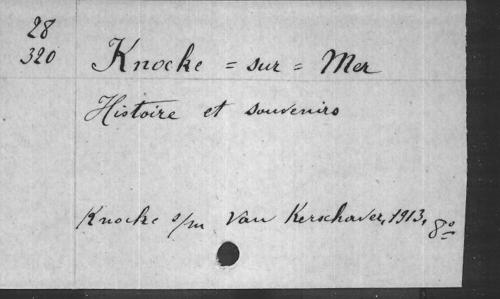 28
320
Knocke = sur = Mer
Histoire et souvenirs
Knocke s/m Van Kerschaver, 1913, 8º